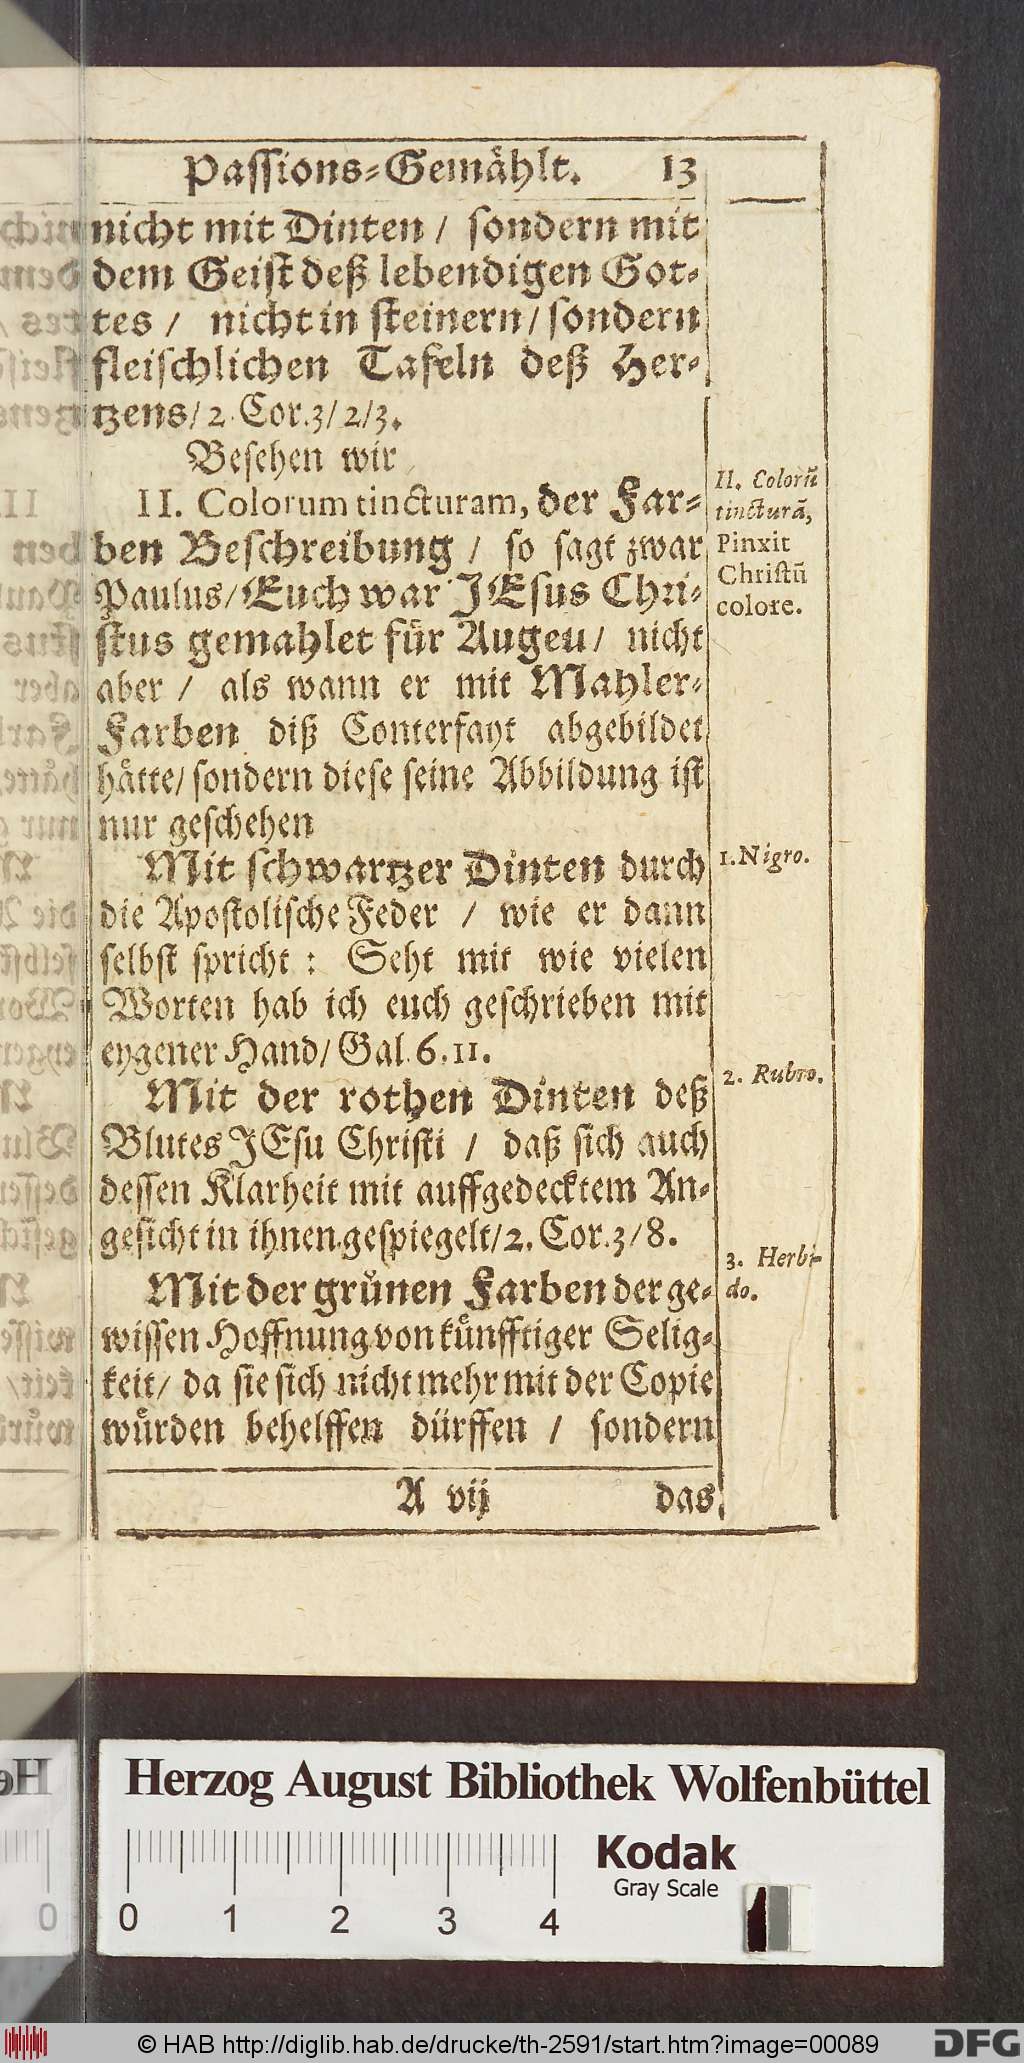 Passions-Gemählt. 13
nicht mit Dinten / sondern mit
dem Geist deß lebendigen Got-
tes / nicht in steinern/ sondern
fleischlichen Tafeln deß Her-
tzens/ 2. Cor. 3/ 2/3.
Besehen wir
II. Colorum tincturam, der Far-
ben Beschreibung / so sagt zwar
Paulus/ Euch war JEsus Chri-
stus gemahlet für Augeu / nicht
aber / als wann er mit Mahler-
Farben diß Conterfayt abgebildet
hätte/ sondern diese seine Abbildung ist
nur geschehen
Mit schwartzer Dinten durch
die Apostolische Feder / wie er dann
selbst spricht : Seht mit wie vielen
Worten hab ich euch geschrieben mit
eygener Hand/ Gal. 6. 11.
Mit der rothen Dinten deß
Blutes JEsu Christi / daß sich auch
dessen Klarheit mit auffgedecktem An-
gesicht in ihnen gespiegelt/ 2. Cor. 3/ 8.
Mit der grünen Farben der ge-
wissen Hoffnung von künfftiger Selig-
keit/ da sie sich nicht mehr mit der Copie
würden behelffen dürffen / sondern
A vij das
II. Colorũ
tincturã,
Pinxit
Christũ
colore.
1. Nigro.
2. Rubro.
3. Herbi-
do.
Herzog August Bibliothek Wolfenbüttel
Kodak
Gray Scale
0 1 2 3 4
© HAB http://diglib.hab.de/drucke/th-2591/start.htm?image=00089
DFG